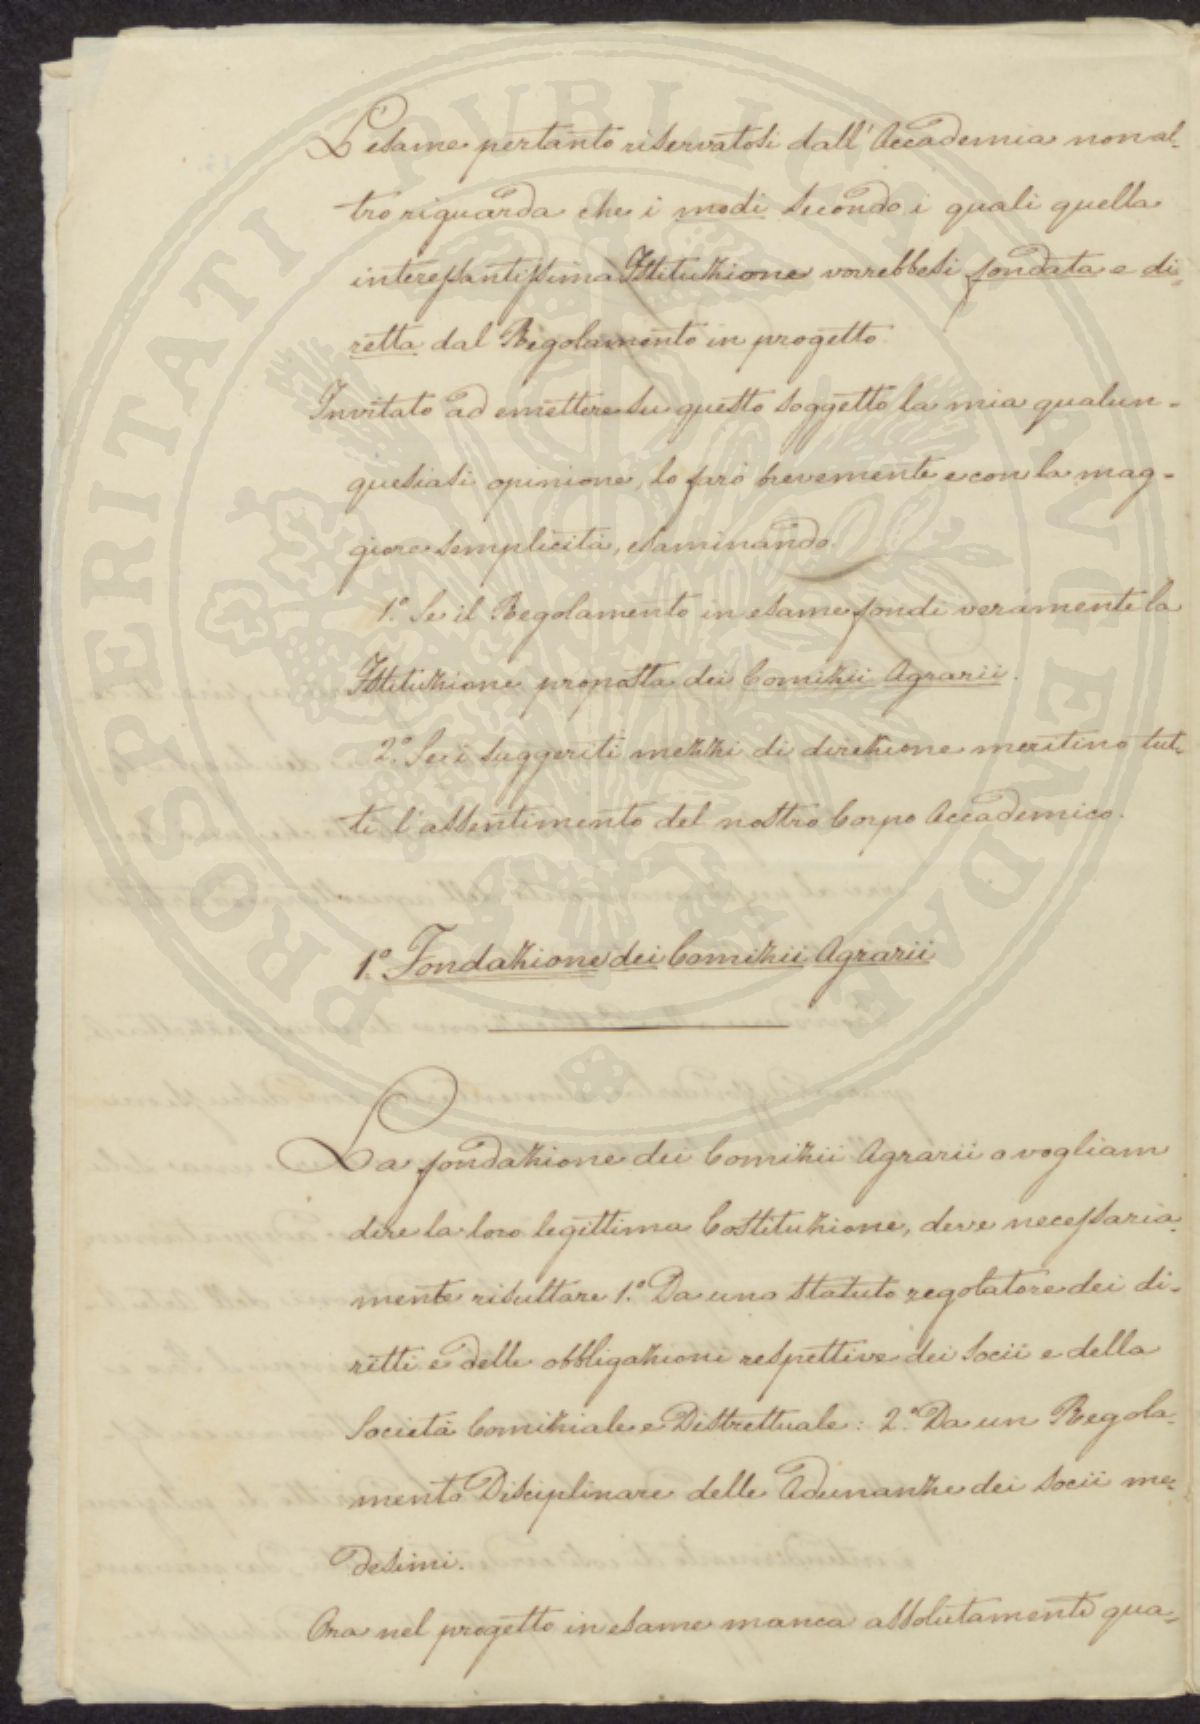 L'esame pertanto riservatosi dall'Accademia non al-
tro riguarda che i modi secondo i quali quella
interessantissima Istituzione vorrebbesi fondata e di-
retta dal Regolamento in progetto.
Invitato ad emettere su questo soggetto la mia qualun-
quesiasi opinione, lo farò brevemente e con la mag-
giore semplicità, esaminando.
1.° Se il Regolamento in esame fondi veramente la
Istituzione proposta dei Comizii Agrarii.
2.° Se i suggeriti mezzi di direzione meritino tut-
ti l'assentimento del nostro Corpo Accademico.
1.° Fondazione dei Comizii Agrarii
La fondazione dei Comizii Agrarii o vogliam
dire la loro legittima Costituzione, deve necessaria-
mente risultare 1.° Da uno statuto regolatore dei di-
ritti e delle obbligazioni respettive dei Socii e della
Società Comiziale e Distrettuale: 2.° Da un Regola-
mento Disciplinare delle Adunanze dei Socii me-
desimi.
Ora nel progetto in esame manca assolutamente qua-
PROSPERITATI PVBLICAE AVGENDAE